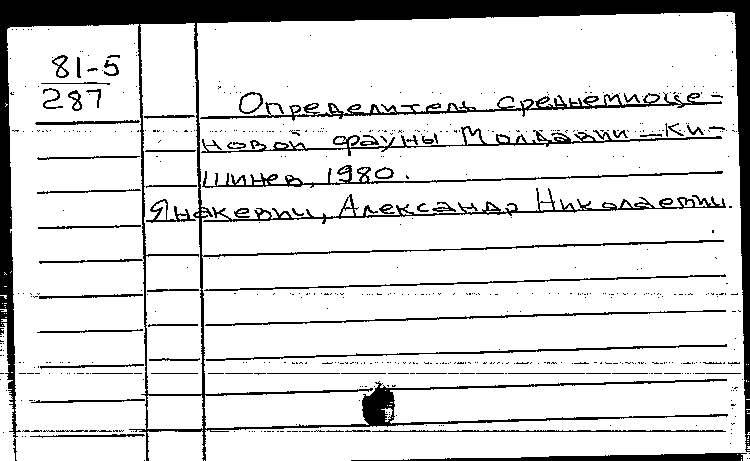 81-5
287
Определитель среднемиоце-
новой фауны Молдавии – Ки-
шинев, 1980.
Янакевич, Александр Николаевич.